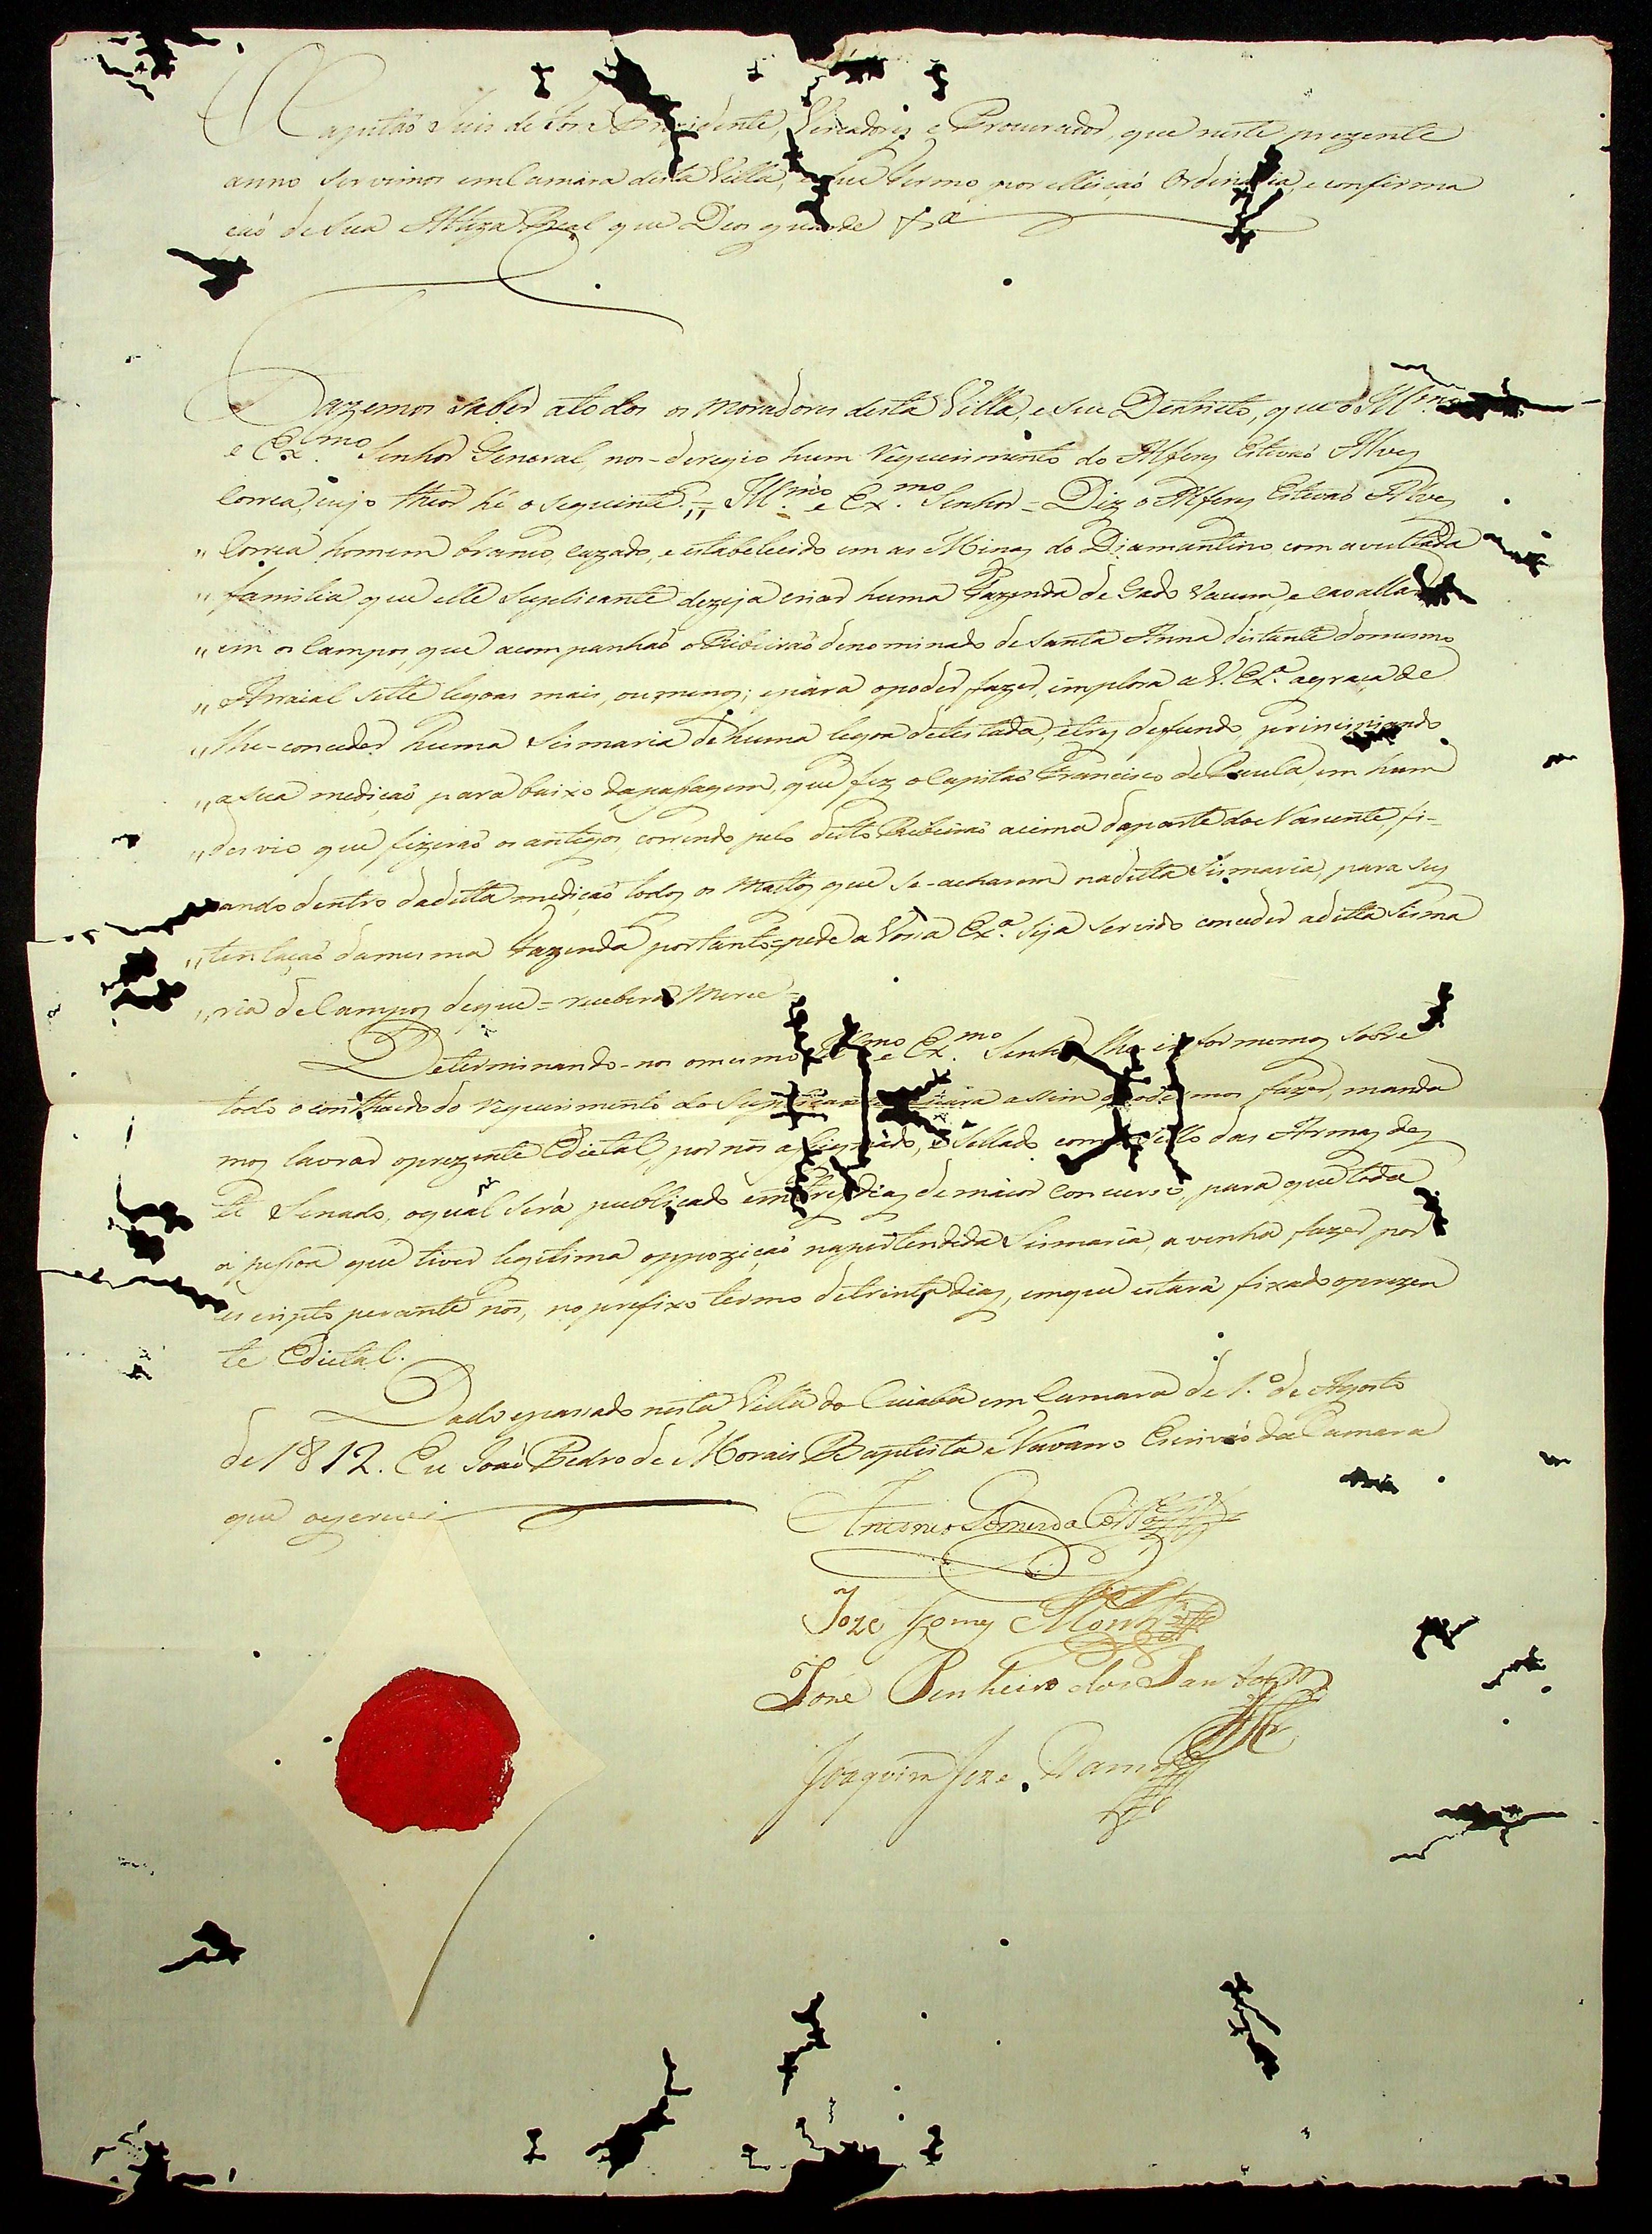 O Capitaó Juis de Fora Prezidente, Vereadores e Procurador, que neste prezente
anno servimos em Camara desta Villa, e seu Termo, por elleiçaó Ordinaria, e confirma
çaó de Sua Alteza Real que Deos guarde &.ª
Fazemos saber a todos os moradores desta Villa, e seu Destricto, que o Ill.mo
e Ex.mo Senhor General nos-deregio hum requerimento do Alferes Estevaó Alves
Correa, cujo theor hé o seguinte = Ill.mo e Ex.mo Senhor = Diz o Alferes Estevaó Alves
" Correa homem branco, cazado, e estabelecido em as Minas do Diamantino com avultada
" familia que elle Suplicante dezeja criar huma Fazenda de Gado Vacum, e cavallar
" em os Campos, que acompanhaó o Ribeiraó denominado de Santa Anna distante do mesmo
" Arraial sette legoas mais, ou menos; e para o poder fazer, implora a V. Ex.ª a graça de
" lhe-conceder huma Sismaria de huma legoa de testada, e tres de fundo, principiando
" a sua mediçaó para baixo da passagem, que fez o Capitaó Francisco de Paula, em hum
" desvio que fizeraó os antigos, correndo pelo dito Ribeiraó acima da parte do Nascente, fi-
cando dentro da ditta mediçaó todos os Mattos que se-acharem na ditta Sismaria, para sus
" tentaçaó da mesma Fazenda portanto = pede a Vossa Ex.ª seja servido conceder a ditta Sisma
" ria de Campos de que = receberá Merce =
Determinando-nos o mesmo Ill.mo e Ex.mo Senhor, lhe-informemos sobre
todo o contheudo do requerimento do Suplicante e para assim o podermos fazer, manda
mos lavrar o prezente Edictal, por nós assignado, e Sellado com o Sello das Armas des
te Senado, o qual será publicado em tres dias de maior concurso, para que toda
a pessoa que tiver legitima oppoziçaó na pertendida Sismaria, a venha fazer por
escripto perante nós, no prefixo termo de trinta dias, em que estará fixado o prezen
te Edictal.
Dado e passado nesta Villa do Cuiabá em Camara de 1.º de Agosto
de 1812. Eu Joaó Pedro de Morais Baptista e Navarro Escrivaó da Camara
que o escrevi
Antonio Gomes da Costa
Jozé Gomes Montrº
José Pinheiro dos Santos
Joaquim Joze Ramos